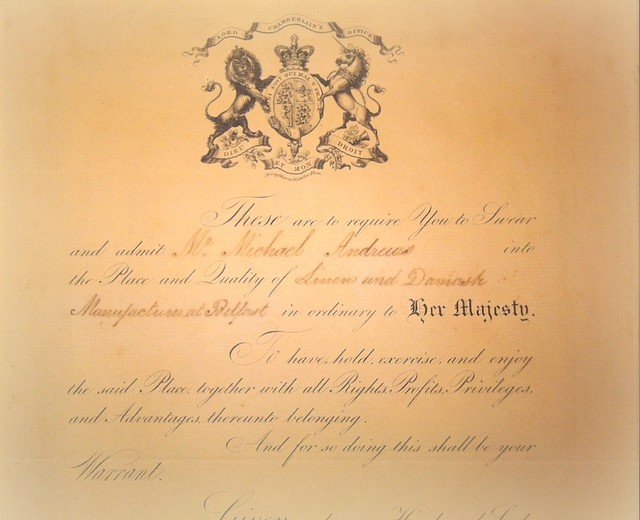 LORD CHAMBERLAIN'S OFFICE
HONI SOIT QUI MAL Y PENSE
DIEU ET MON DROIT
These are to require You to Swear
and admit Mr. Michael Andrews into
the Place and Quality of Linen and Damask
Manufacturer at Belfast in ordinary to Her Majesty.
To have, hold, exercise, and enjoy
the said Place, together with all Rights, Profits, Privileges,
and Advantages, thereunto belonging.
And for so doing this shall be your
Warrant.
Given